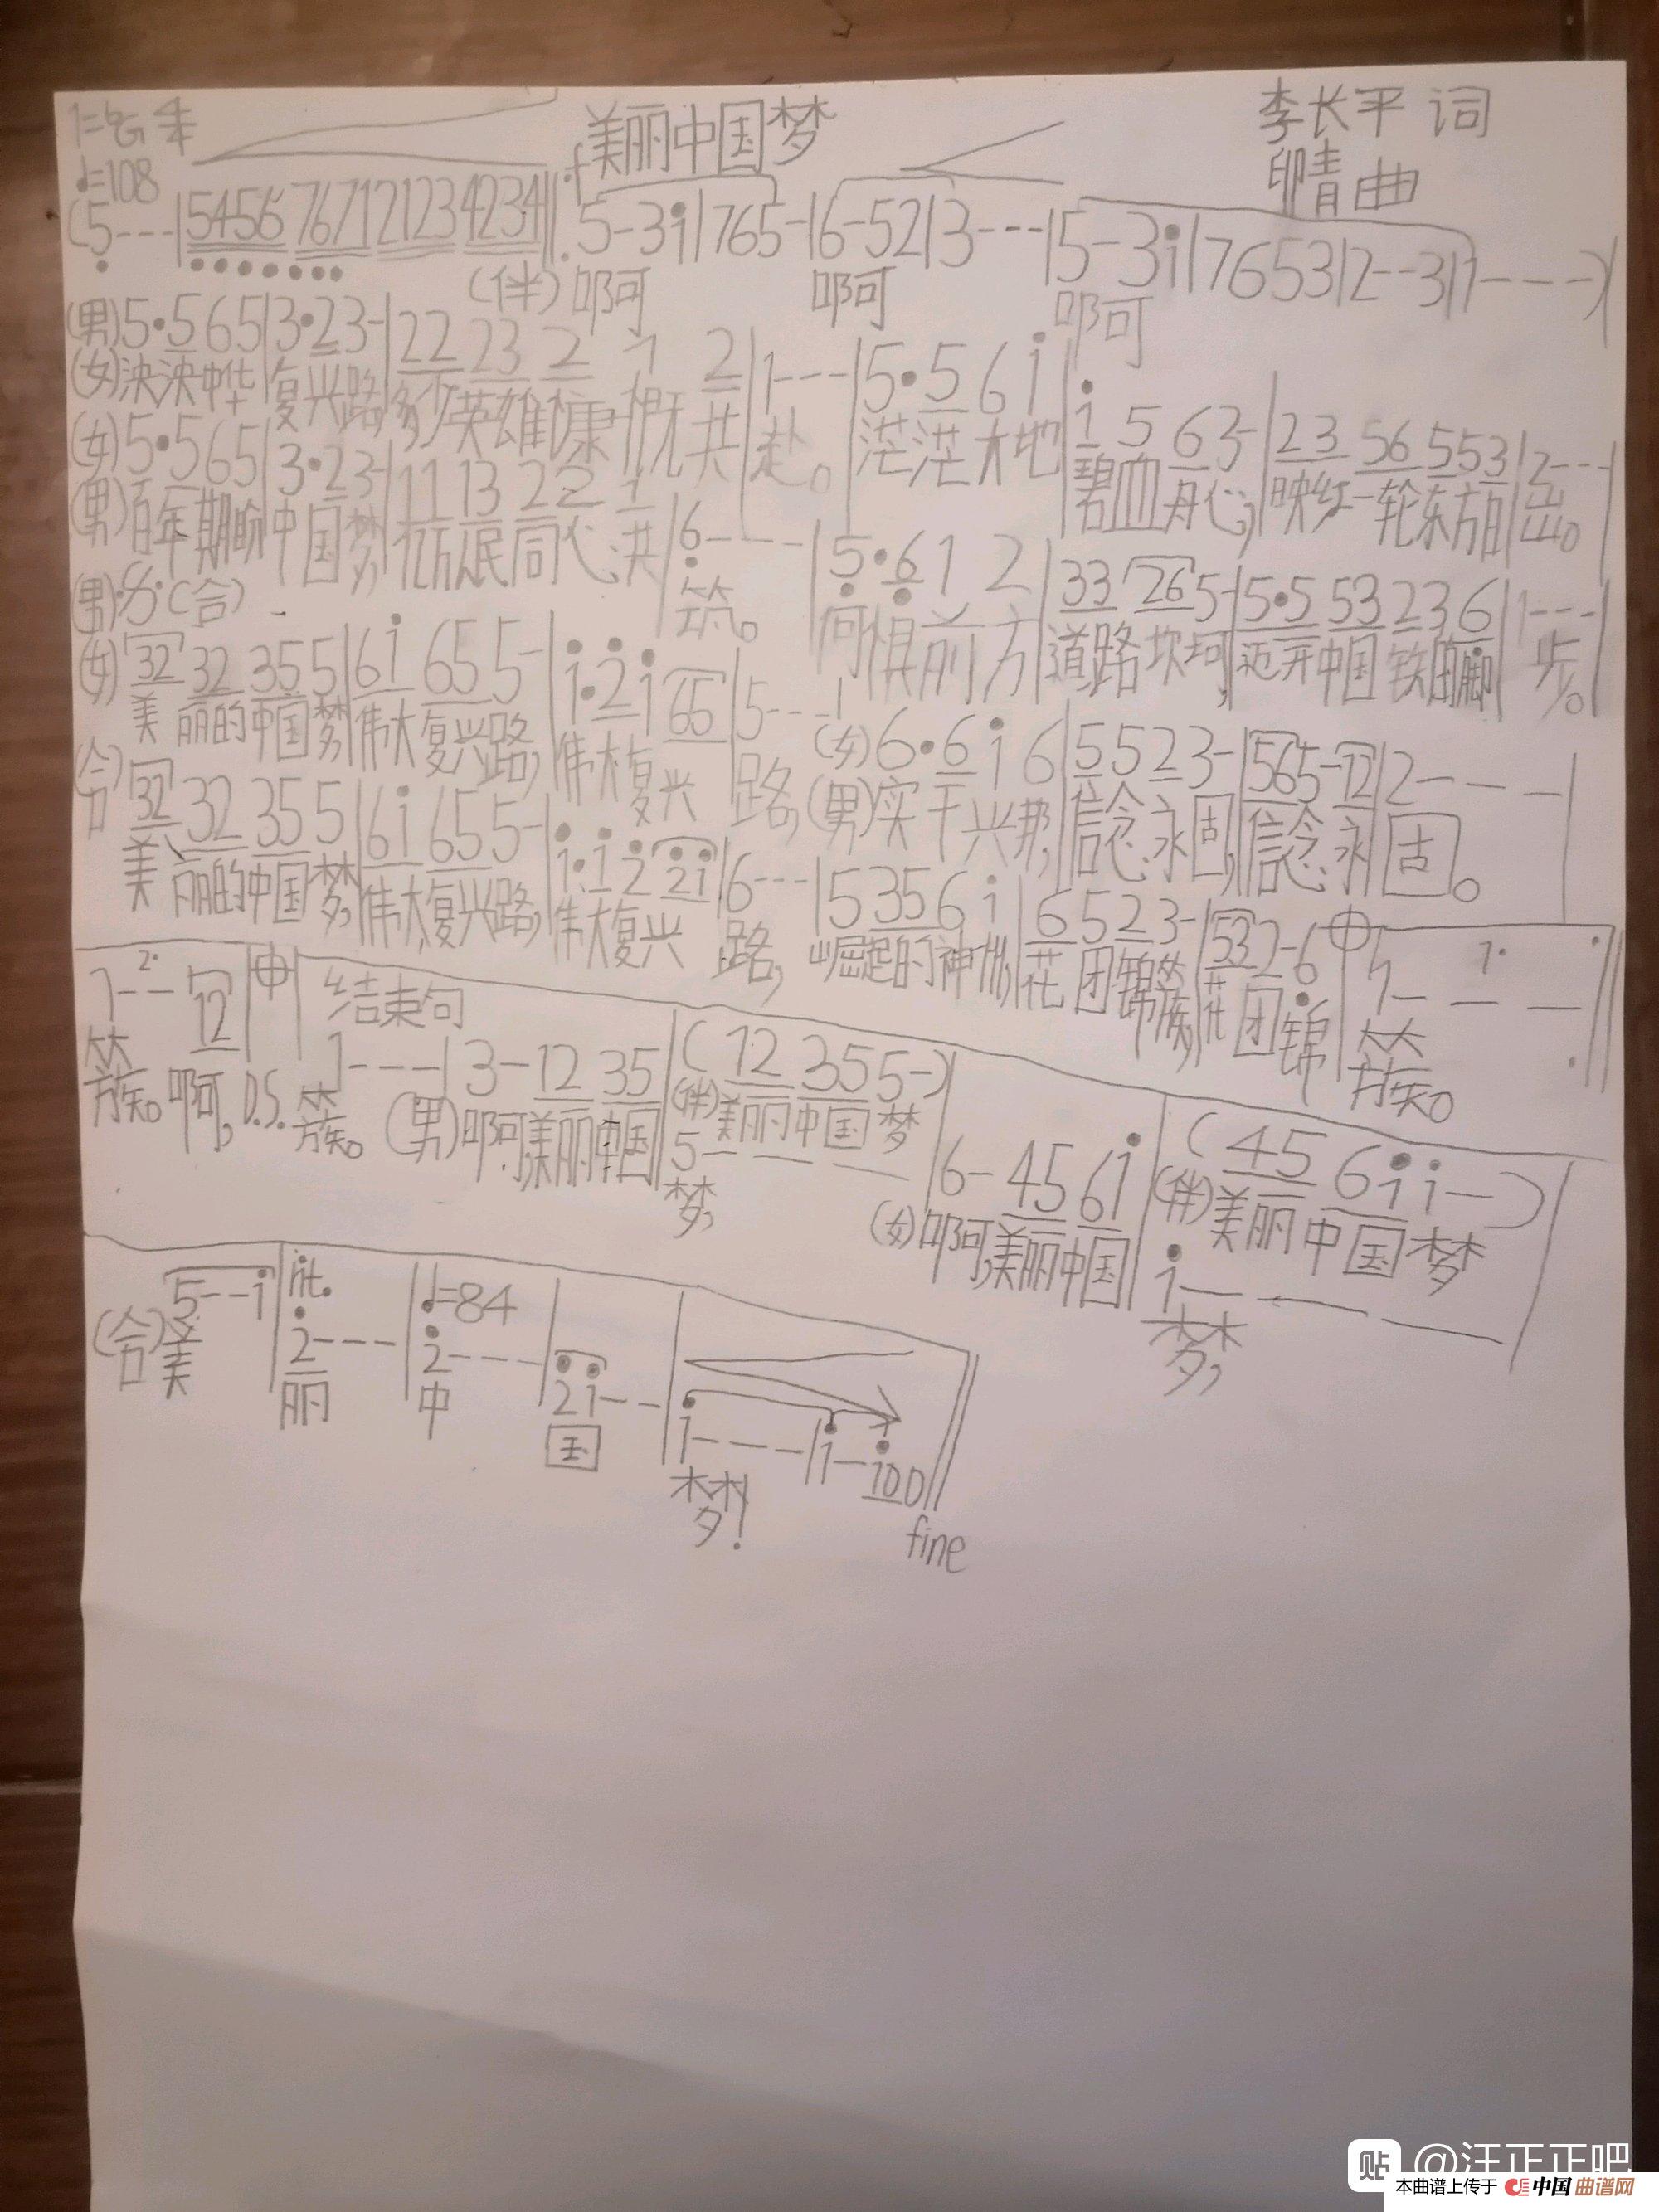 1=♭G 4/4 美丽中国梦 李长平 词
♩=108 印青 曲
(5---|5456 7671 2123 4234‖: f 5-3i|765-|6-52|3---|5-3i|7653|2--3|1---)|
(伴)啊 啊 啊
(男)5·5 65|3·23-|22 23 2 1 2|1---|5·5 6 i|i 5 63-|23 56 553|2---|
(女)泱泱中华|复兴路,|多少英雄慷慨共|赴。|茫茫大地|碧血丹心,|映红一轮东方日|出。
(女)5·5 65|3·23-|11 13 22 1|6---|5·6 1 2|33 26 5-|5·5 53 23 6|1---|
(男)百年期盼|中国梦,|亿万人民同心共|筑。|何惧前方|道路坎坷,|迈开中国铁的脚|步。
(男)·(合)
(女) 32 32 35 5|6i 65 5-|i·2 i 65|5---|(女)6·6 i 6|5 5 2 3-|565-12|2---|
美丽的中国梦,|伟大复兴路,|伟大复兴|路,|(男)实干兴邦,|信念永固,|信念永|固。
(合) 32 32 35 5|6i 65 5-|i·i 2 2i|6---|5 35 6 i|6 5 2 3-|53 2-6|1---:‖
美丽的中国梦,|伟大复兴路,|伟大复兴|路,|崛起的神州,|花团锦簇,|花团锦|簇。
2· 1·
1-- 12| |结束句
1---|3-12 35|(12 35 5-)
簇。啊, D.S. 簇。(男)啊,美丽中国|(伴)美丽中国梦
5---
梦,
|6-45 6i|(45 6i i-)
(女)啊,美丽中国|(伴)美丽中国梦
i---
梦,
5--i|rit. 2---|♩=84 2---|2i--|i---|i-i00‖
(合)美 丽 中 国 梦!
fine
贴 @汪正正吧
本曲谱上传于 中国曲谱网